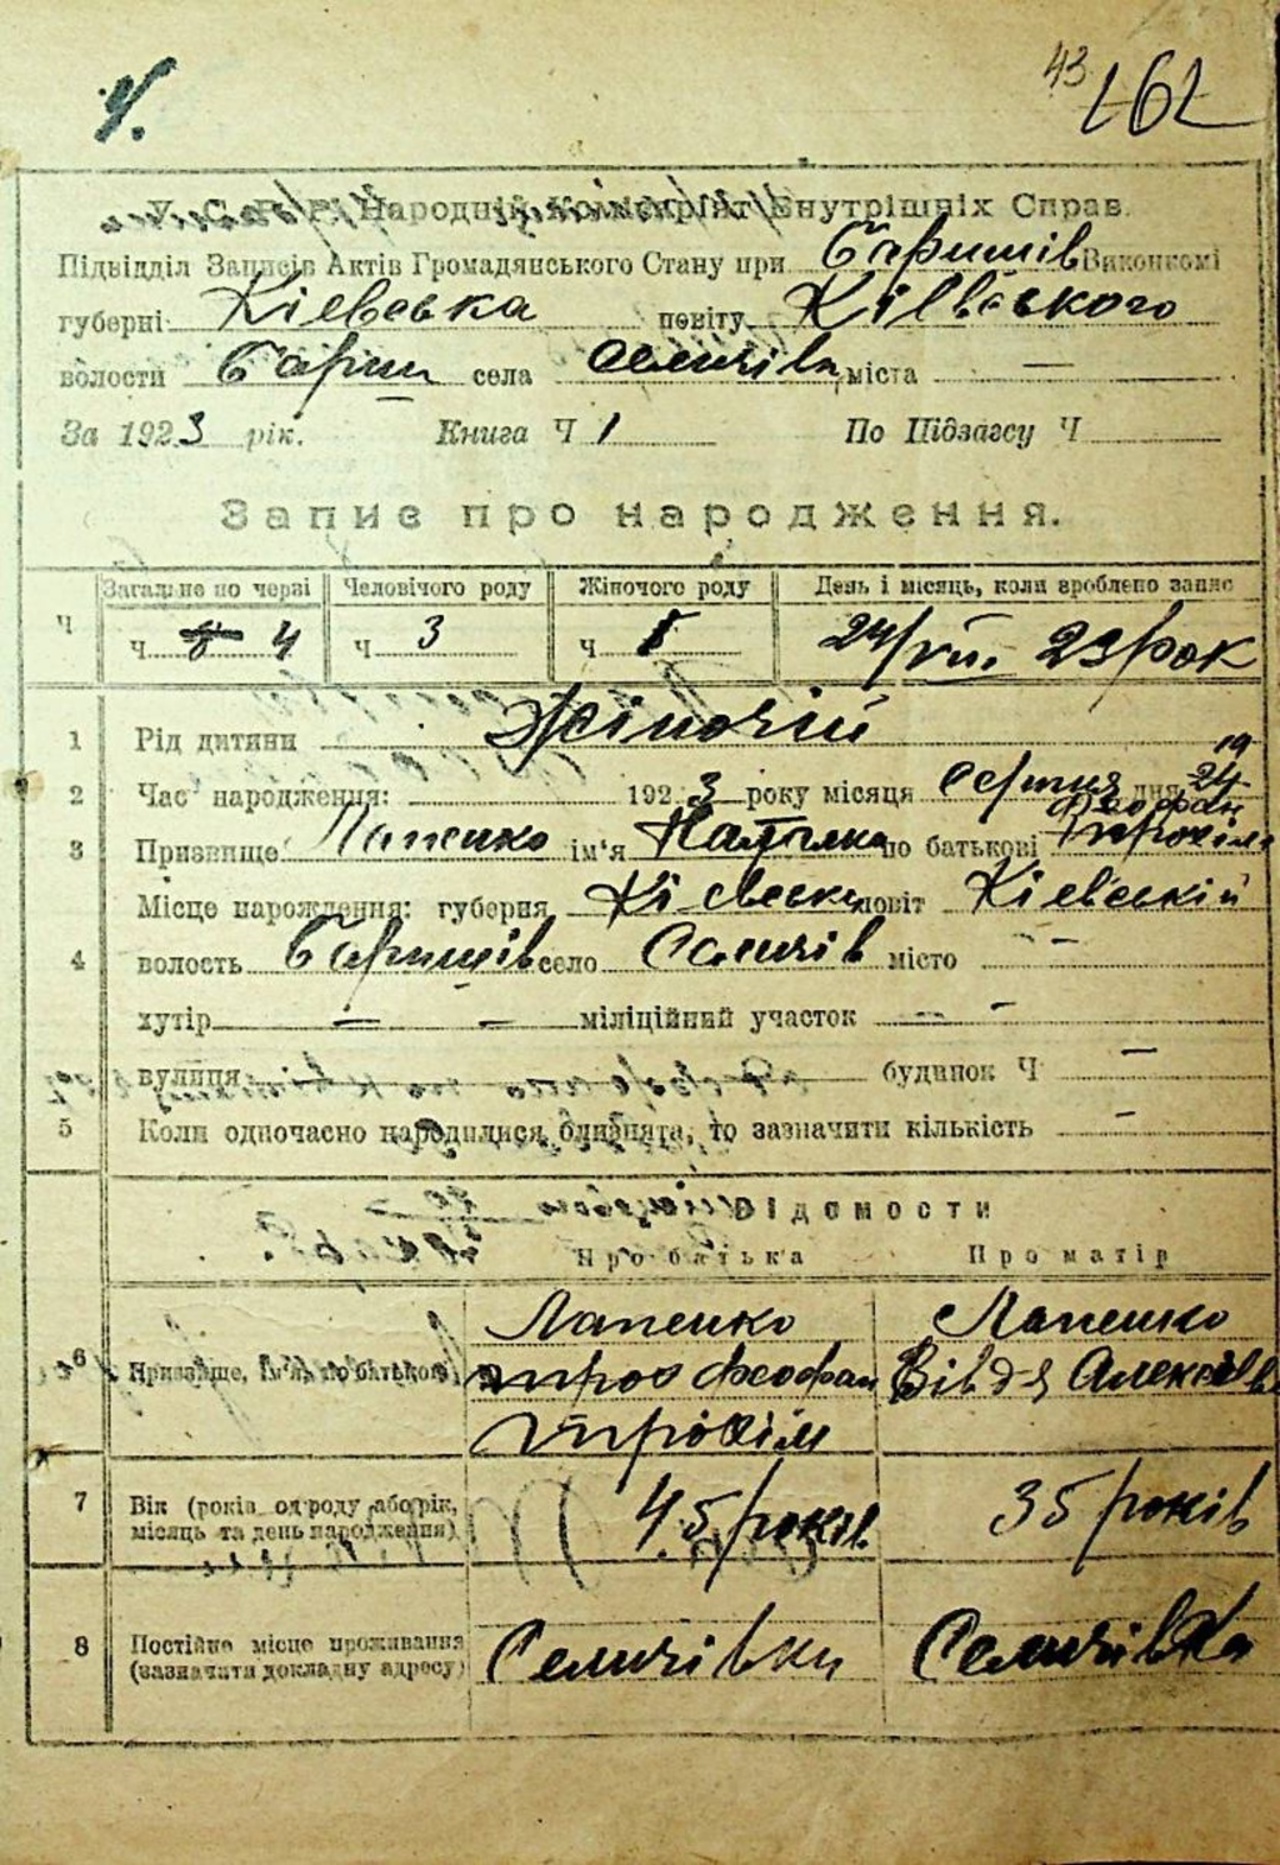 4.
43 162
У. С. Р. Р. Народній Комісаріят Внутрішніх Справ.
Підвідділ Записів Актів Громадянського Стану при Баришів Виконкомі
губерні Кіевська повіту Кіевського
волости Бариш села Селичівка міста —
За 1923 рік. Книга Ч 1 По Підзагсу Ч
Запис про народження.
Загальне по черзі Человічого роду Жіночого роду День і місяць, коли зроблено запис
Ч Ч 4 Ч 3 Ч 24/VIII. 23 рок
1 Рід дитини Жіночій
19
2 Час народження: 1923 року місяця Серпня дня 24
Феофан
3 Призвище Лапенко ім'я Наталка по батькові Трохим
Місце нарождення: губерня Кіевська повіт Кіевській
4 волость Баришів село Селичів місто —
хутір — — міліційний участок — —
вулиця будинок Ч —
5 Коли одночасно народилися близнята, то зазначити кількість —
Відомости
Про батька Про матір
Лапенко Лапенко
6 Призвище, ім'я, по батькові Феофан Вівдя Алексіев
Трохим
7 Вік (років од роду або рік, 45 років 35 років
місяць та день народження)
8 Постійне місце проживання Селичівки Селичівка
(зазначити докладну адресу)